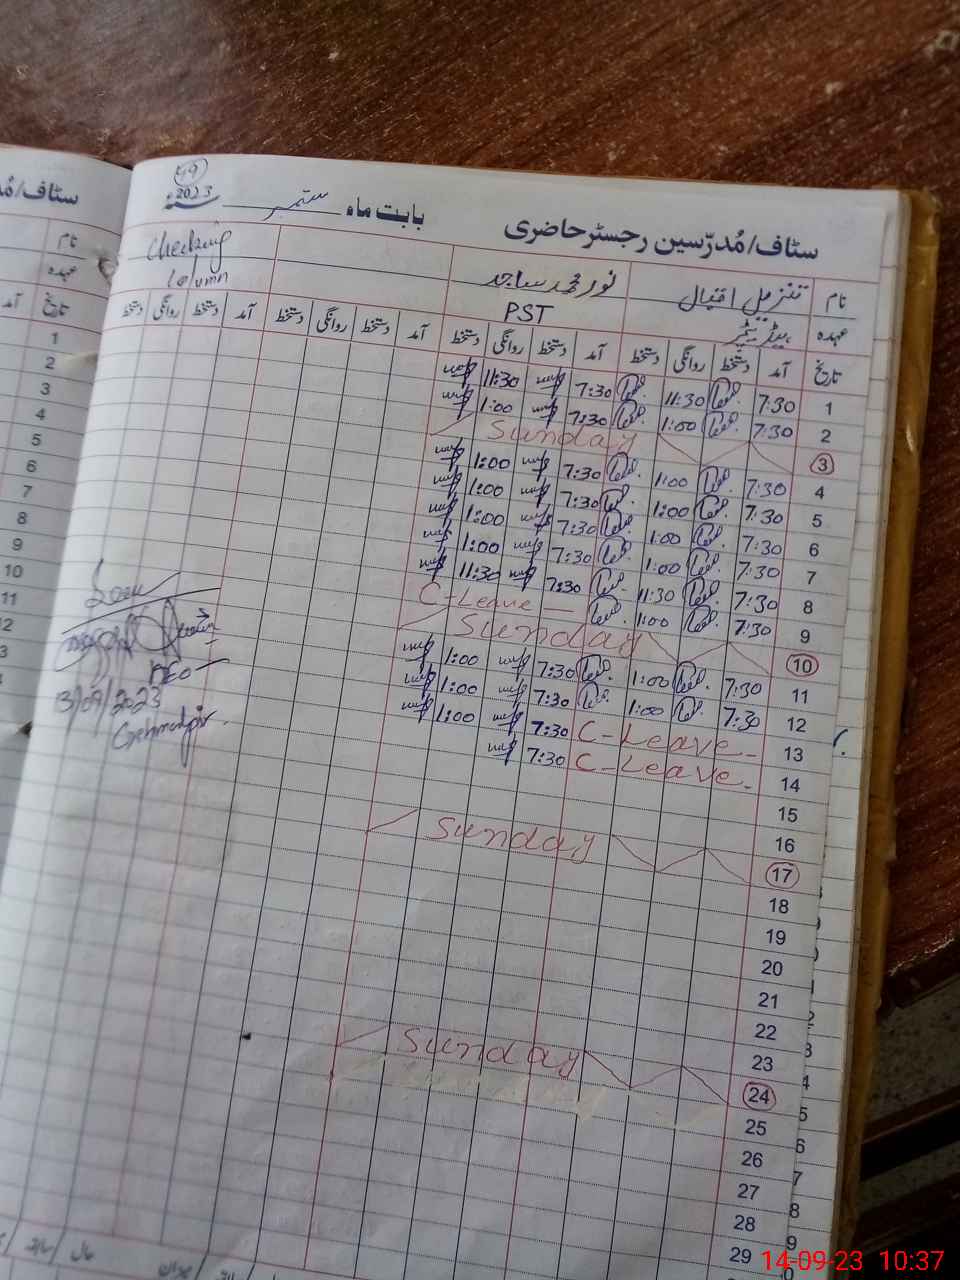 سٹاف/مُدرّسین رجسٹر حاضری بابت ماہ ستمبر 2023
نام تنزیل اقبال نور محمد ساجد Checking Column
عہدہ ہیڈ ٹیچر PST
تاریخ آمد دستخط روانگی دستخط آمد دستخط روانگی دستخط آمد دستخط روانگی دستخط آمد دستخط روانگی دستخط
1 7:30 11:30 7:30 11:30
2 7:30 1:00 7:30 1:00
3 Sunday
4 7:30 1:00 7:30 1:00
5 7:30 1:00 7:30 1:00
6 7:30 1:00 7:30 1:00
7 7:30 1:00 7:30 1:00
8 7:30 11:30 7:30 11:30
9 7:30 1:00 C-Leave
10 Sunday
11 7:30 1:00 7:30 1:00
12 7:30 1:00 7:30 1:00
13 C-Leave 7:30 1:00
14 C-Leave 7:30
15
16
17 Sunday
18
19
20
21
22
23
24 Sunday
25
26
27
28
29
Seen
AEO
13/09/2023
سٹاف/مُد
نام
عہدہ
تاریخ آمد
1
2
3
4
5
6
7
8
9
10
11
14-09-23 10:37